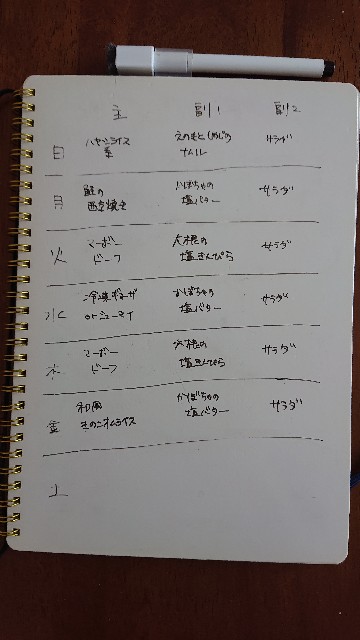 主 副1 副2
日 ハヤシライス えのきとしめじの サラダ
素 ナムル
月 鮭の かぼちゃの サラダ
西京焼き 塩バター
火 マーボー 大根の サラダ
ビーフ 塩きんぴら
水 冷凍ギョーザ かぼちゃの サラダ
orシューマイ 塩バター
木 マーボー 大根の サラダ
ビーフ 塩きんぴら
金 和風 かぼちゃの サラダ
きのこオムライス 塩バター
土